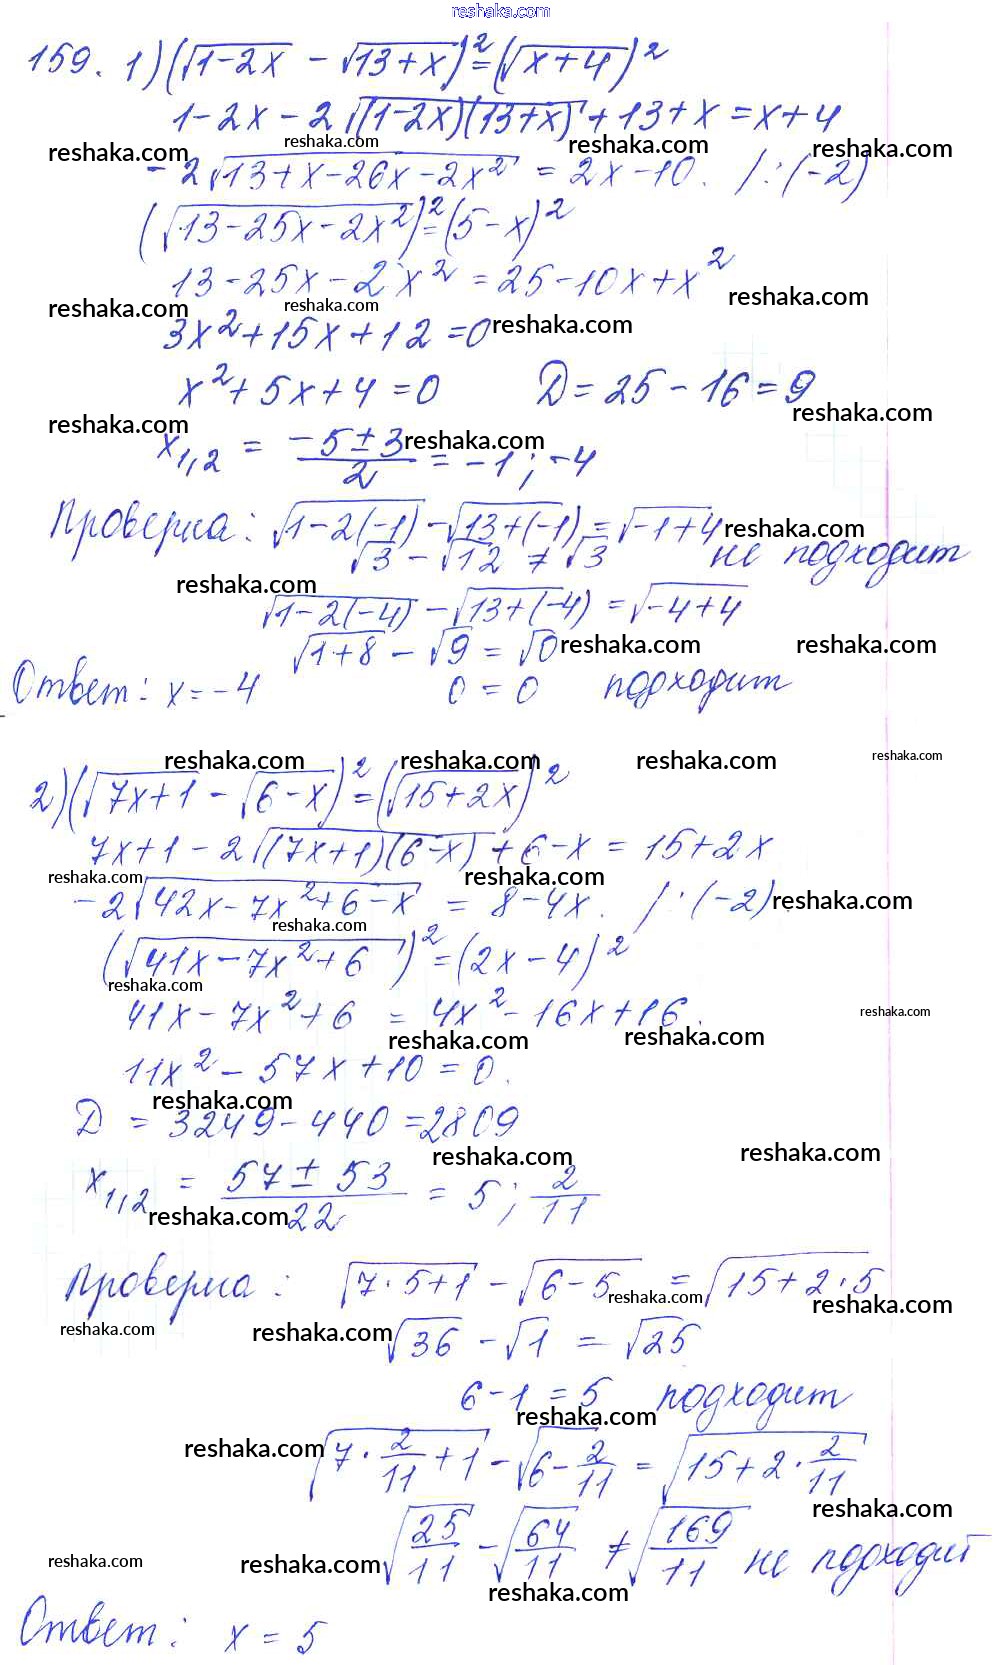 reshaka.com
159. 1) (√1-2x - √13+x)² = (√x+4)²
1-2x-2√(1-2x)(13+x) + 13+x = x+4
reshaka.com reshaka.com reshaka.com reshaka.com
-2√13+x-26x-2x² = 2x-10. /:(-2)
(√13-25x-2x²)² = (5-x)²
13-25x-2x² = 25-10x+x²
reshaka.com reshaka.com reshaka.com reshaka.com
3x²+15x+12=0
x²+5x+4=0 D=25-16=9
reshaka.com reshaka.com reshaka.com
x1,2 = -5±3/2 = -1; -4
Проверка: √1-2(-1) - √13+(-1) = √-1+4 reshaka.com
√3 - √12 ≠ √3 не подходит
reshaka.com
√1-2(-4) - √13+(-4) = √-4+4
√1+8 - √9 = √0 reshaka.com reshaka.com
Ответ: x=-4 0=0 подходит
reshaka.com reshaka.com reshaka.com reshaka.com
2) (√7x+1 - √6-x)² = (√15+2x)²
7x+1-2√(7x+1)(6-x) + 6-x = 15+2x
reshaka.com reshaka.com
-2√42x-7x²+6-x = 8-4x. /:(-2) reshaka.com
reshaka.com
(√41x-7x²+6)² = (2x-4)²
reshaka.com
41x-7x²+6 = 4x²-16x+16. reshaka.com
reshaka.com reshaka.com
11x²-57x+10=0.
reshaka.com
D = 3249-440=2809
reshaka.com reshaka.com
x1,2 = 57±53/22 = 5; 2/11
reshaka.com
Проверка: √7·5+1 - √6-5 = √15+2·5
reshaka.com reshaka.com
reshaka.com reshaka.com √36 - √1 = √25
6-1=5 подходит
reshaka.com
reshaka.com √7·2/11+1 - √6-2/11 = √15+2·2/11
reshaka.com
√25/11 - √64/11 ≠ √169/11 не подходит
reshaka.com reshaka.com reshaka.com
Ответ: x=5